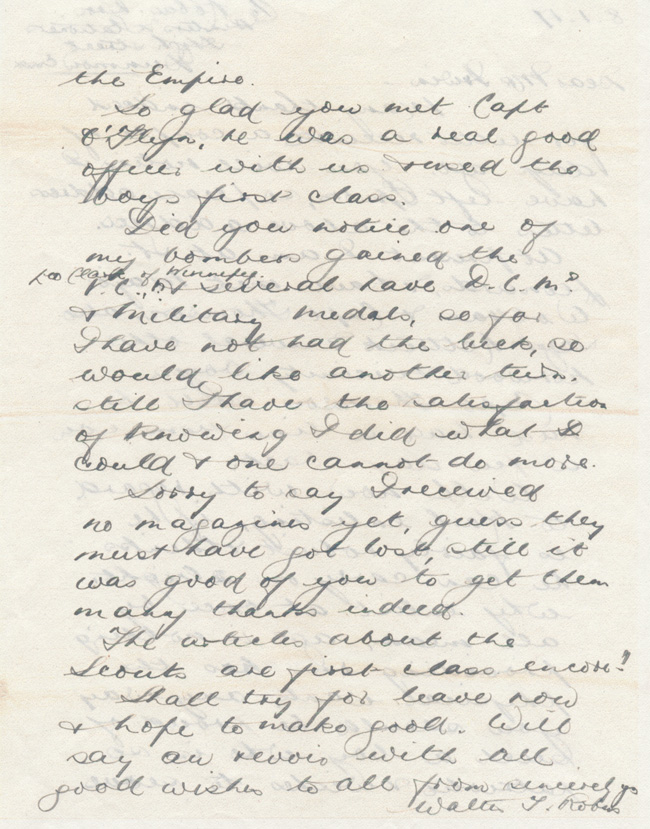 the Empire.
So glad you met Capt
O'Flyn, he was a real good
officer with us & used the
boys first class.
Did you notice one of
my bombers gained the
Leo Clark of Winnipeg.
V.C., & several have D.C.Ms
& Military medals, so far
I have not had the luck, so
would like another turn.
Still I have the satisfaction
of knowing I did what I
could & one cannot do more.
Sorry to say I received
no magazines yet, guess they
must have got lost, still it
was good of you to get them
many thanks indeed.
The articles about the
Scouts are first class encore!
Shall try for leave now
& hope to make good. Will
say au revoir with all
good wishes to all from sincerely yrs
Walter J.